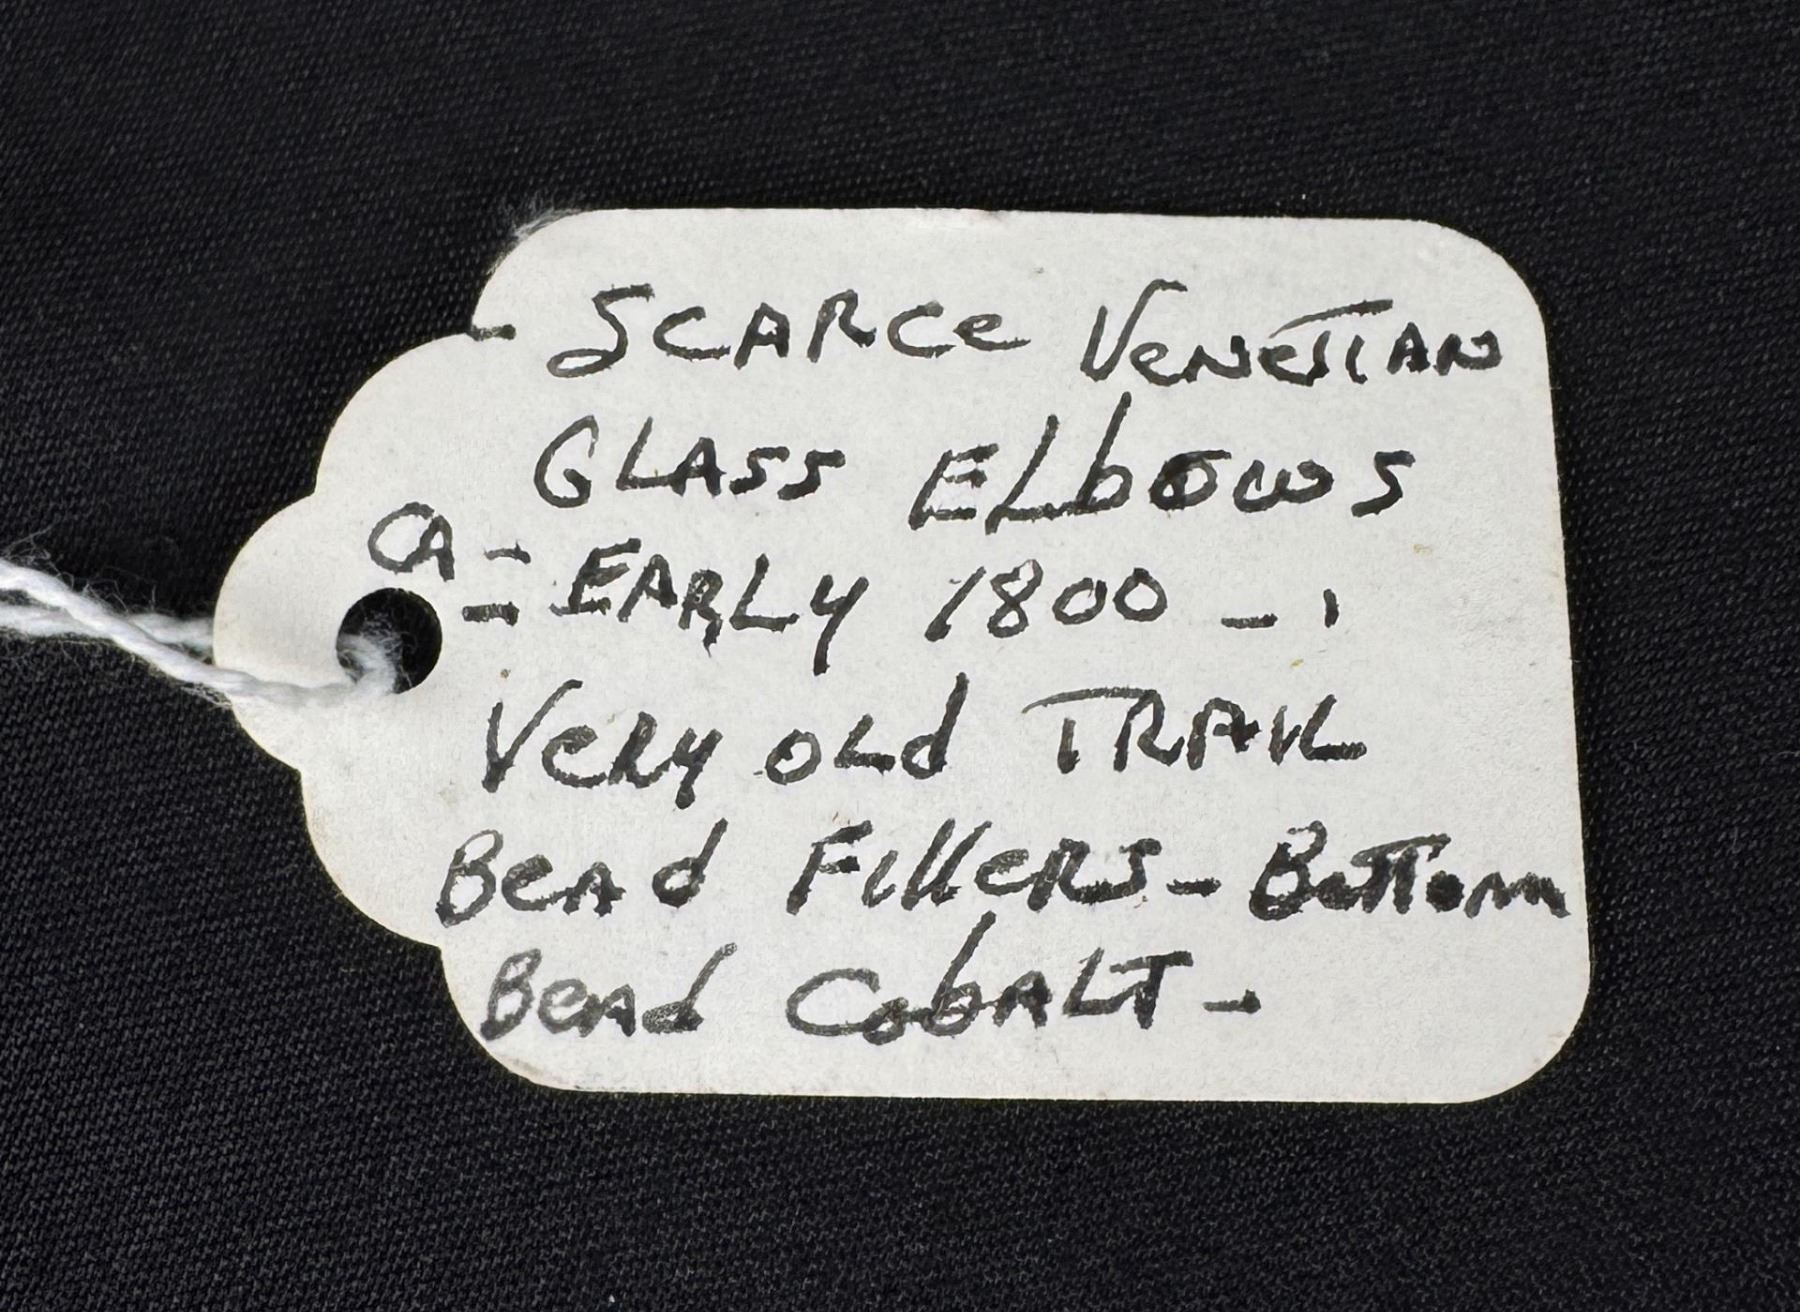 - SCARCe VeNeTIAN
GLASS ElbOwS
CA - = EARLY 1800 - '
VeRy OLd TRAIL
BeAd FIlleRS - BoTTom
BeAd CobALT -